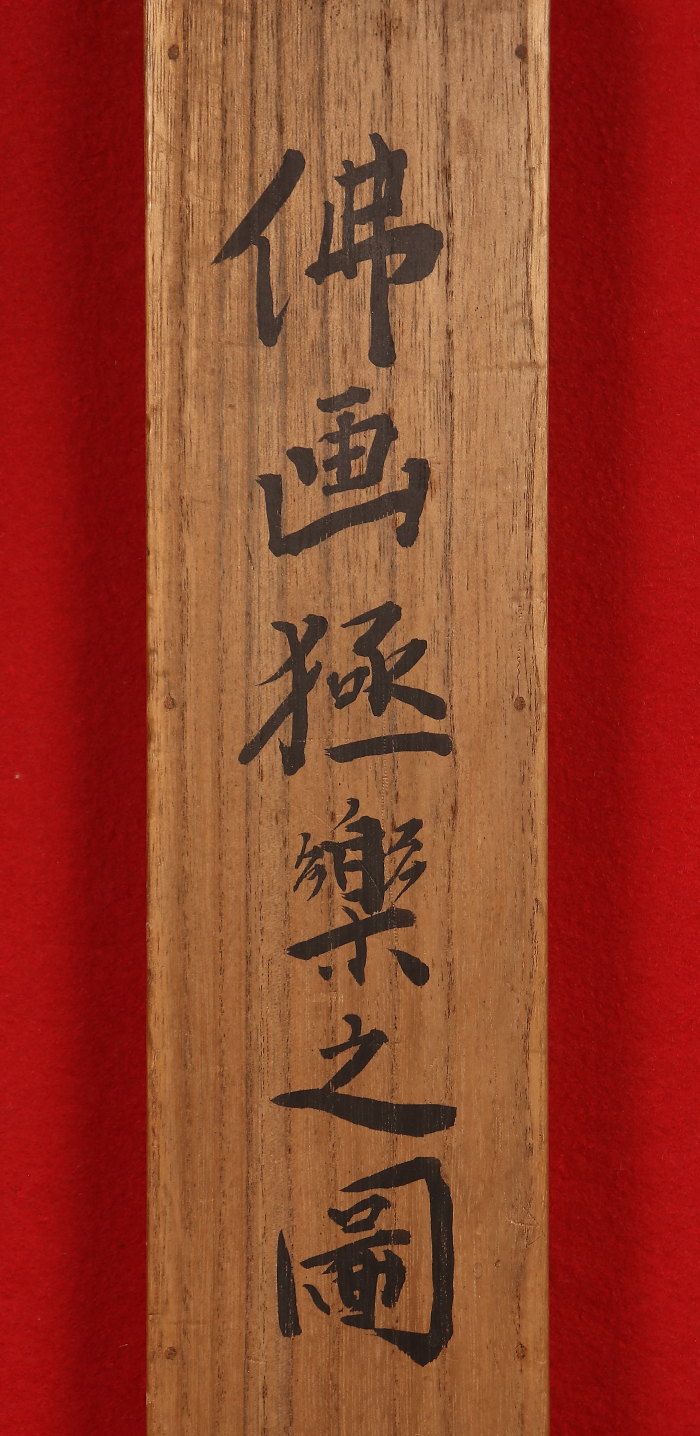 佛画極樂之圖